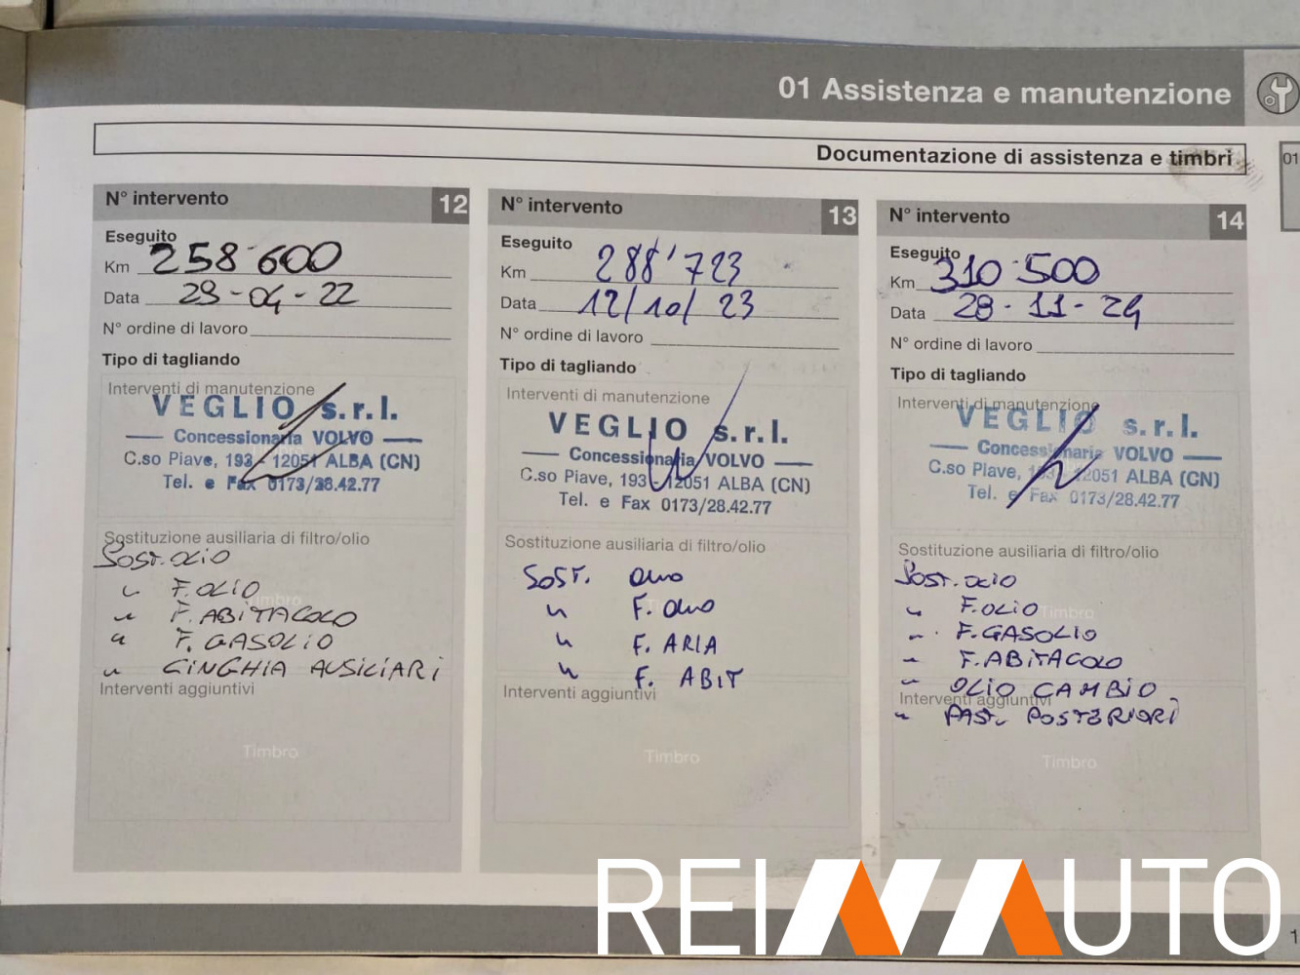 01 Assistenza e manutenzione
Documentazione di assistenza e timbri
01
N° intervento 12
Eseguito
Km 258·600
Data 29-04-22
N° ordine di lavoro
Tipo di tagliando
Interventi di manutenzione
VEGLIO s.r.l.
Concessionaria VOLVO
C.so Piave, 193 - 12051 ALBA (CN)
Tel. e Fax 0173/28.42.77
Sostituzione ausiliaria di filtro/olio
SOST. OLIO
" F. OLIO
" F. ABITACOLO
" F. GASOLIO
" CINGHIA AUSILIARI
Interventi aggiuntivi
Timbro
N° intervento 13
Eseguito
Km 288'723
Data 12/10/23
N° ordine di lavoro
Tipo di tagliando
Interventi di manutenzione
VEGLIO s.r.l.
Concessionaria VOLVO
C.so Piave, 193 - 12051 ALBA (CN)
Tel. e Fax 0173/28.42.77
Sostituzione ausiliaria di filtro/olio
SOST. OLIO
" F. OLIO
" F. ARIA
" F. ABIT
Interventi aggiuntivi
Timbro
N° intervento 14
Eseguito
Km 310·500
Data 28-11-24
N° ordine di lavoro
Tipo di tagliando
Interventi di manutenzione
VEGLIO s.r.l.
Concessionaria VOLVO
C.so Piave, 193 - 12051 ALBA (CN)
Tel. e Fax 0173/28.42.77
Sostituzione ausiliaria di filtro/olio
SOST. OLIO
" F. OLIO
Timbro
" F. GASOLIO
" F. ABITACOLO
" OLIO CAMBIO
Interventi aggiuntivi
" PAST. POSTERIORI
Timbro
REINAUTO